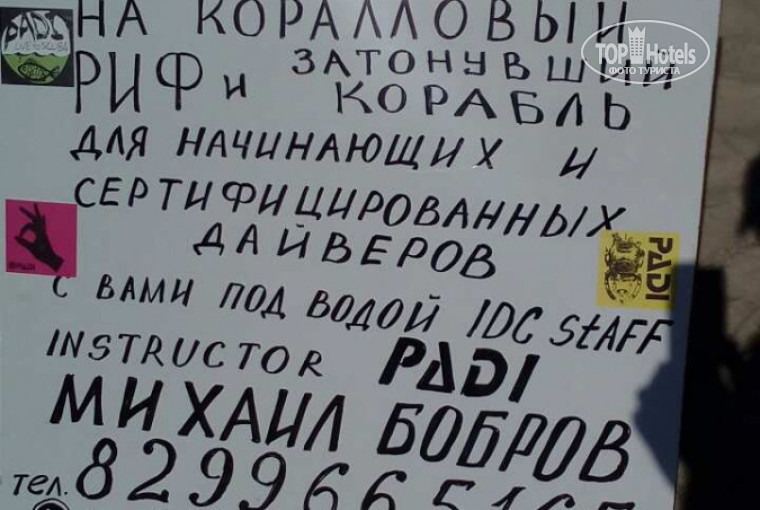 НА КОРАЛЛОВЫЙ
РИФ и ЗАТОНУВШИЙ
КОРАБЛЬ
ДЛЯ НАЧИНАЮЩИХ И
СЕРТИФИЦИРОВАННЫХ
ДАЙВЕРОВ
С ВАМИ ПОД ВОДОЙ IDC StAFF
INSTRUCTOR PADI
МИХАИЛ БОБРОВ
тел. 8299665167
PADI
PADI
TOP Hotels
ФОТО ТУРИСТА